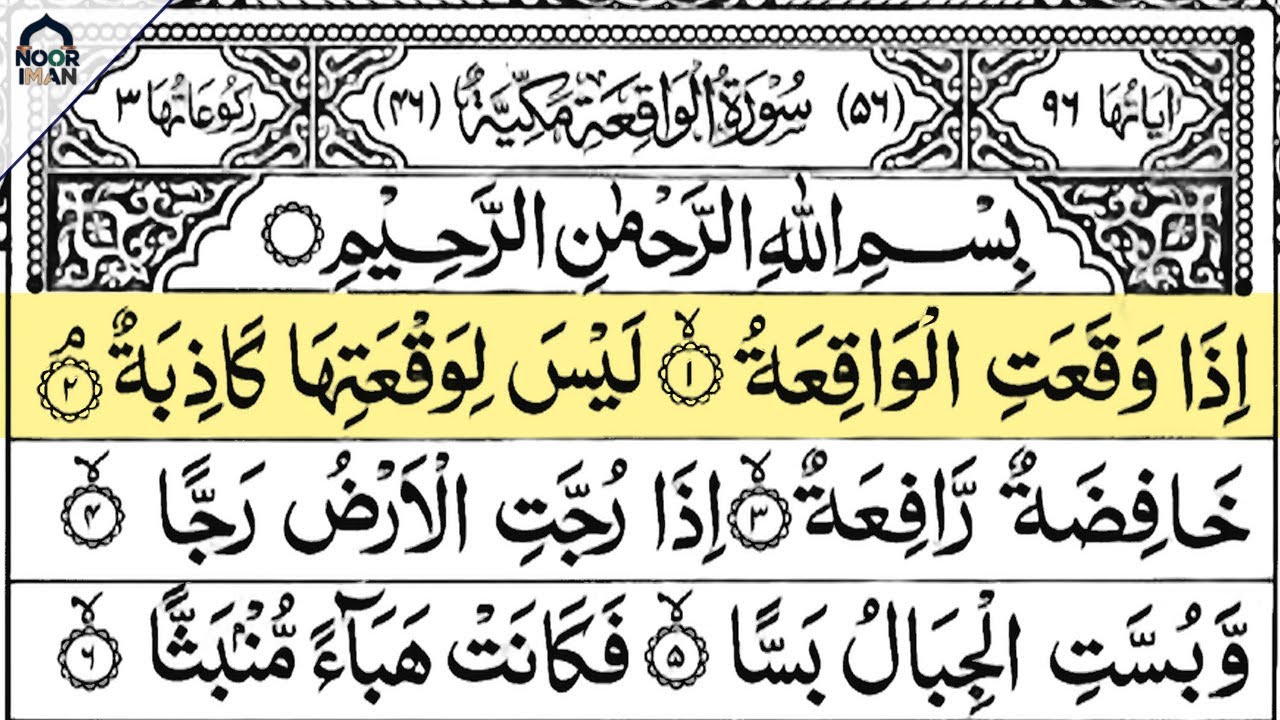 NOOR
IMAN
اٰيَاتُهَا ٩٦ (٥٦) سُوْرَةُ الْوَاقِعَةِ مَكِّيَّةٌ (٤٦) رُكُوْعَاتُهَا ٣
بِسْمِ اللّٰهِ الرَّحْمٰنِ الرَّحِيْمِ
اِذَا وَقَعَتِ الْوَاقِعَةُ ۙ﴿۱﴾ لَيْسَ لِوَقْعَتِهَا كَاذِبَةٌ ۘ﴿۲﴾
خَافِضَةٌ رَّافِعَةٌ ۙ﴿۳﴾ اِذَا رُجَّتِ الْاَرْضُ رَجًّا ۙ﴿۴﴾
وَّبُسَّتِ الْجِبَالُ بَسًّا ۙ﴿۵﴾ فَكَانَتْ هَبَآءً مُّنْۢبَثًّا ۙ﴿۶﴾